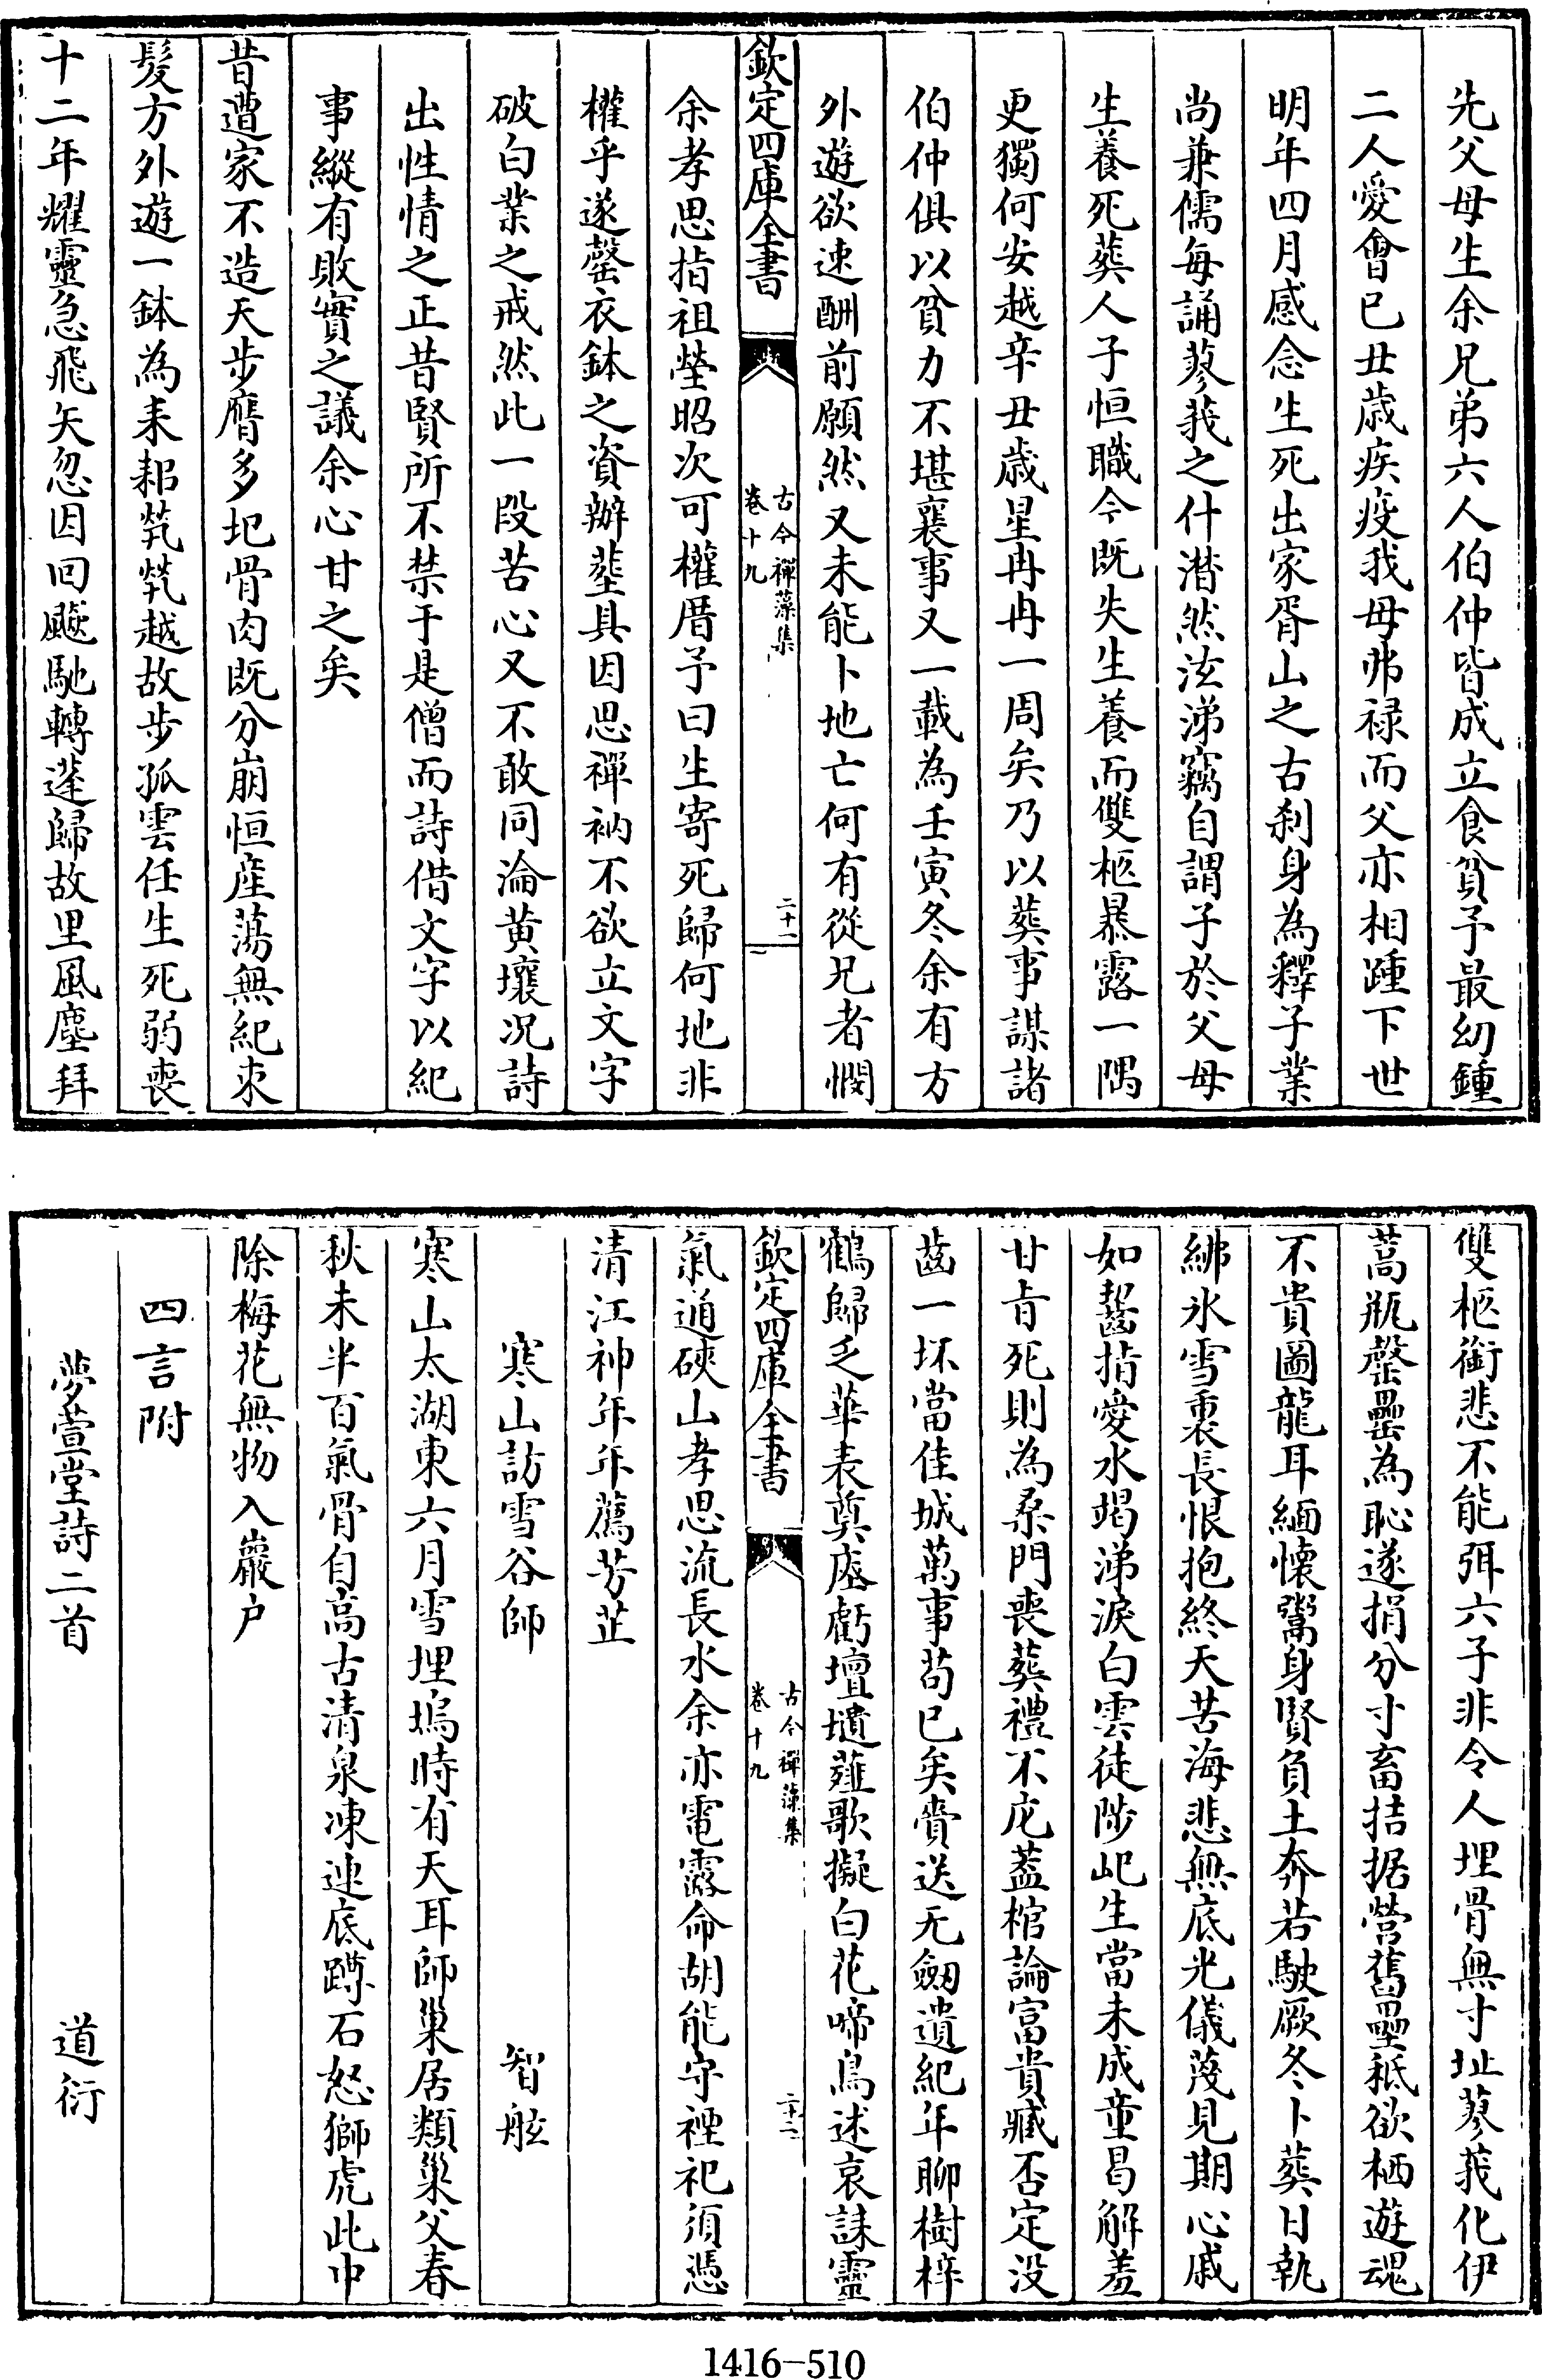 先父母生余兄弟六人伯仲皆成立食貧予最幼鍾
二人愛會已丑歳疾疫我母弗禄而父亦相踵下世
明年四月感念生死出家胥山之古刹身為釋子業
尚兼儒每誦蓼莪之什潜然泫涕竊自謂子於父母
生養死葬人子恒職今既失生養而雙柩暴露一隅
更獨何安越辛丑歳星冉冉一周矣乃以葬事謀諸
伯仲俱以貧力不堪襄事又一載為壬寅冬余有方
外遊欲速酬前願然又未能卜地亡何有從兄者憫
欽定四庫全書
古今禪藻集
卷十九
二十一
余孝思指祖塋昭次可權厝予曰生寄死歸何地非
權乎遂罄衣鉢之資辦塟具因思禪衲不欲立文字
破白業之戒然此一段苦心又不敢同淪黄壤况詩
出性情之正昔賢所不禁于是僧而詩借文字以紀
事縱有敗實之議余心甘之矣
昔遭家不造天步膺多圯骨肉既分崩恒産蕩無紀束
髮方外遊一鉢為耒耜煢煢越故步孤雲任生死弱喪
十二年耀靈急飛矢忽因回飈馳轉蓬歸故里風塵拜
雙柩銜悲不能弭六子非令人埋骨無寸址蓼莪化伊
蒿瓶罄罍為恥遂捐分寸畜拮据營舊壘秪欲栖遊魂
不貴圖龍耳緬懷鬻身賢負土奔若駛厥冬卜葬日執
紼氷雪裏長恨抱終天苦海悲無底光儀蔑見期心戚
如齧指愛水竭涕淚白雲徒陟屺生當未成童曷解羞
甘旨死則為桑門喪葬禮不庀葢棺論富貴臧否定没
齒一坏當佳城萬事苟已矣賫送无劒遺紀年聊樹梓
鶴歸乏華表奠座虧壇壝薤歌擬白花啼鳥述哀誄靈
欽定四庫全書
古今禪藻集
卷十九
二十二
氣通硤山孝思流長水余亦電露命胡能守禋祀須憑
清江神年年薦芳芷
寒山訪雪谷師
智舷
寒山太湖東六月雪埋塢時有天耳師巢居類巢父春
秋未半百氣骨自高古清泉凍連底蹲石怒獅虎此中
除梅花無物入巖户
四言附
夢萱堂詩二首
道衍
1416-510